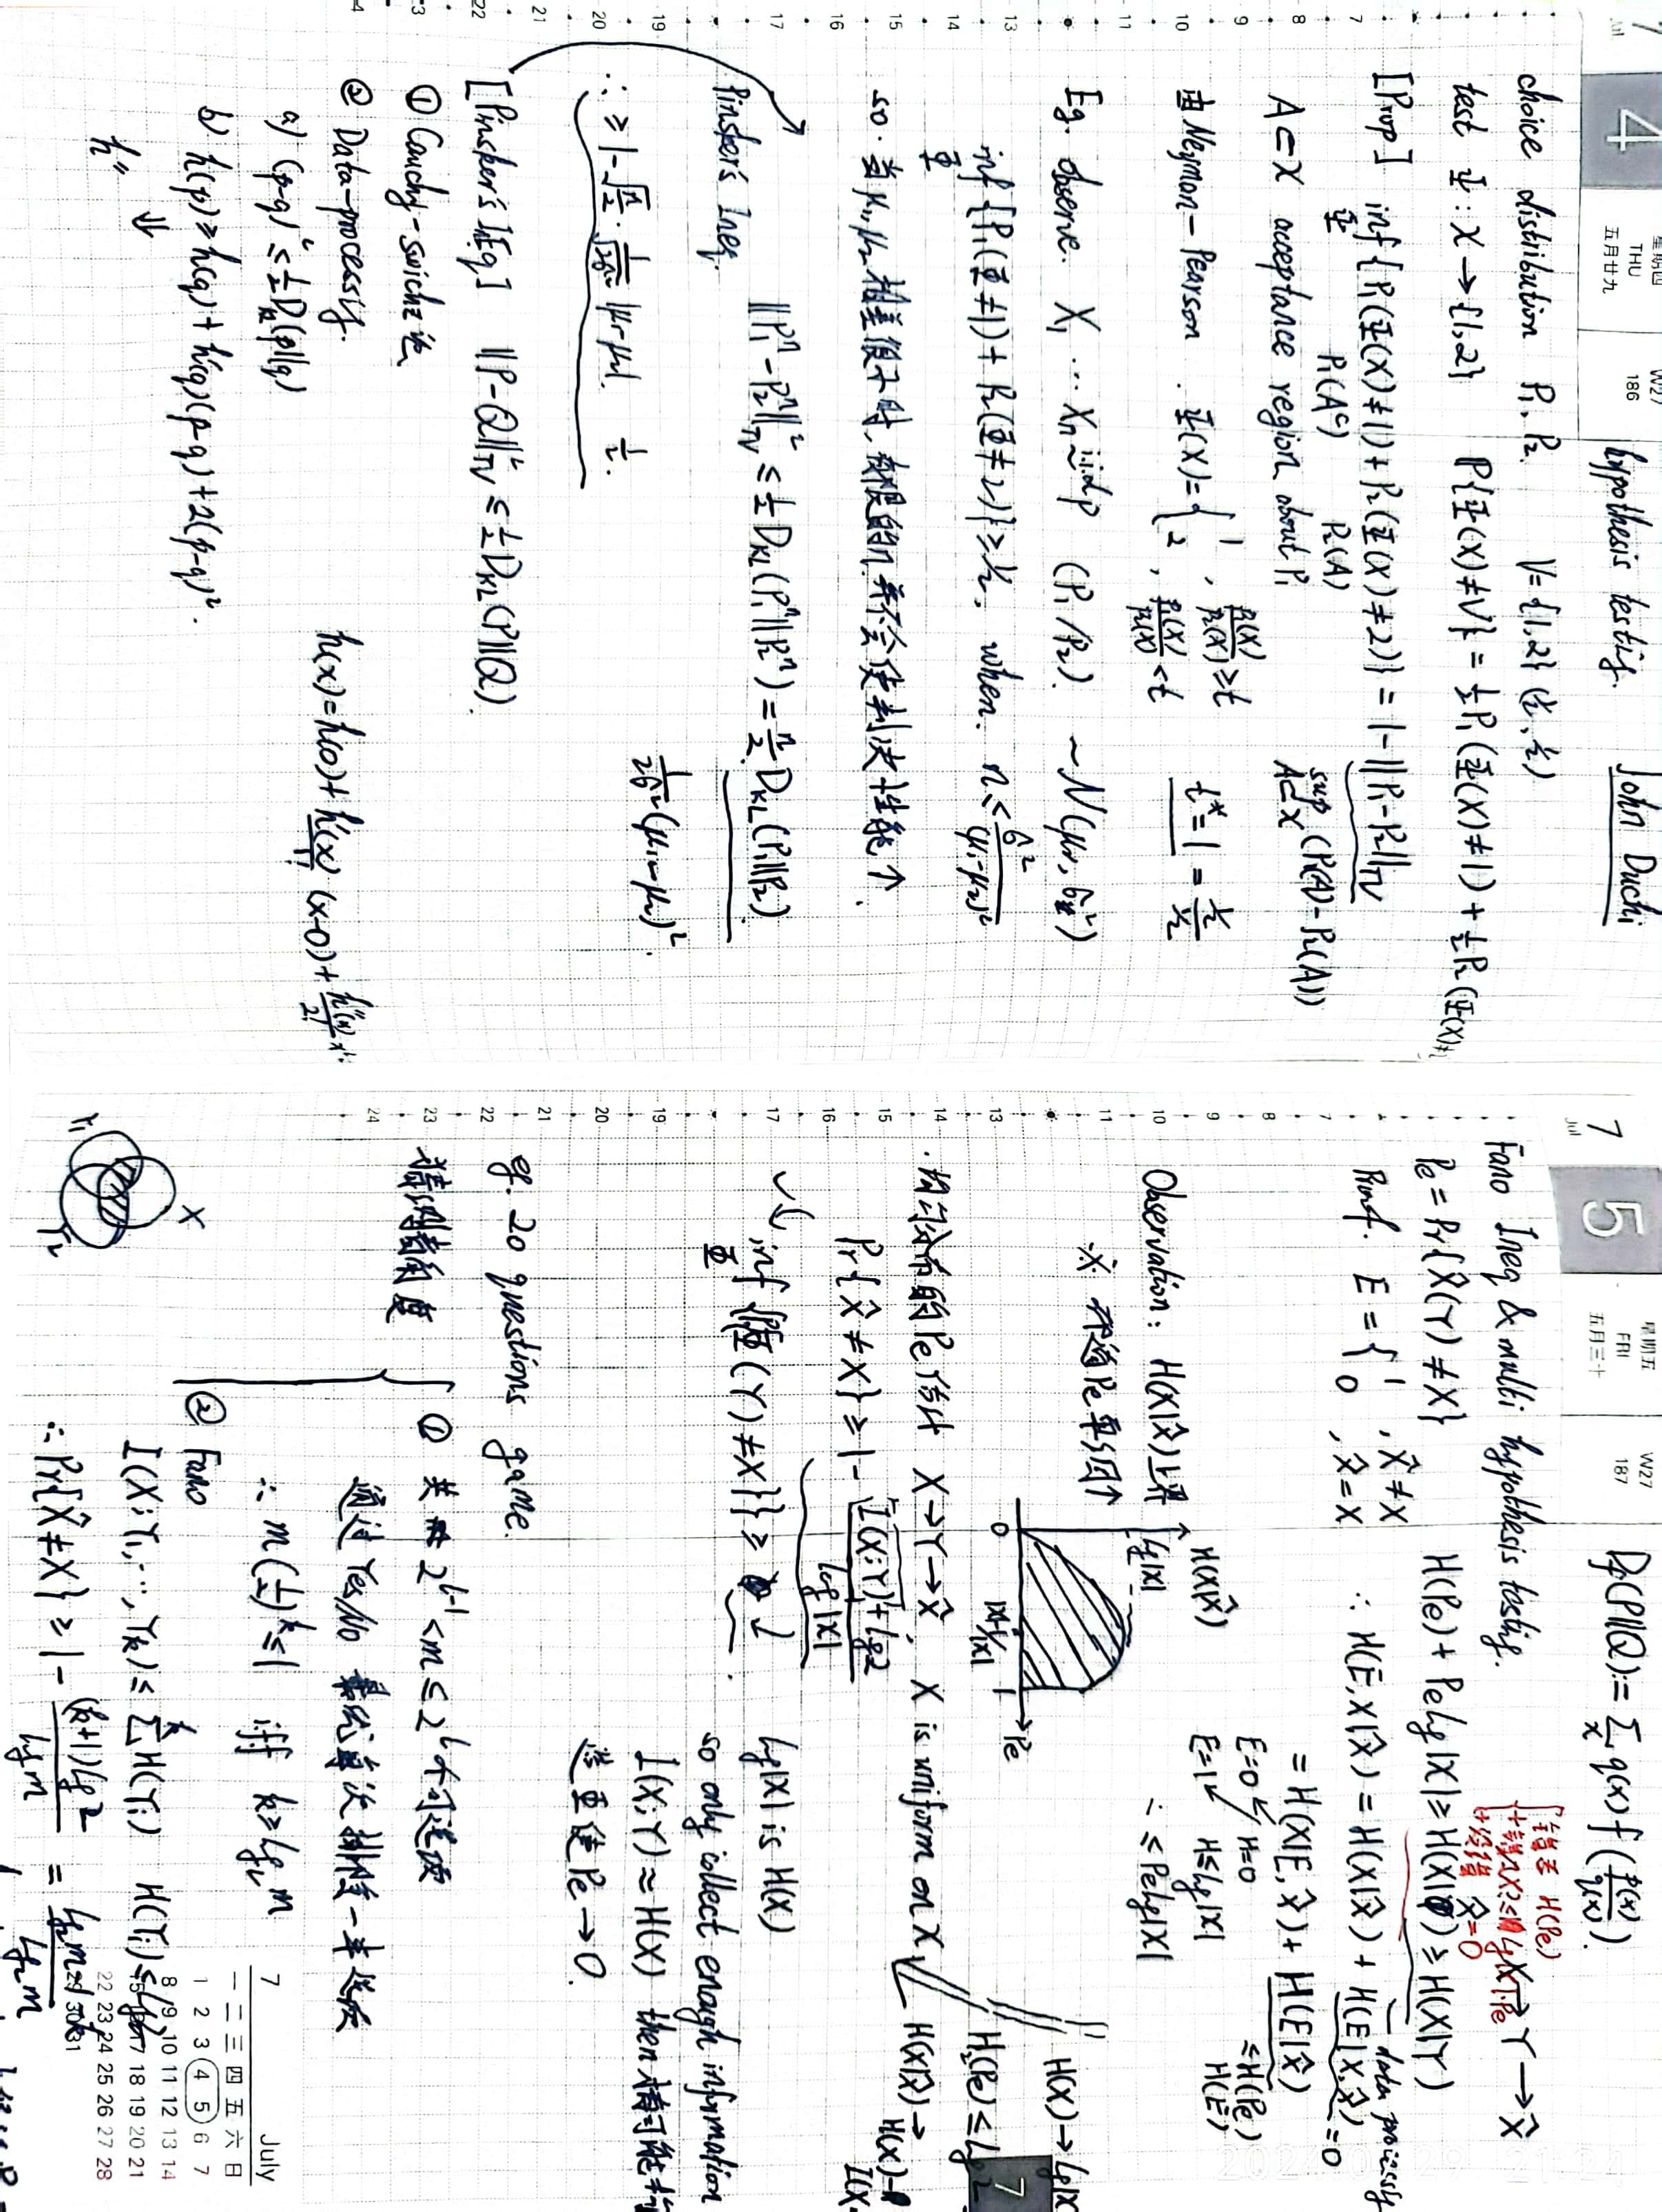 7 Jul 4 星期四 THU 五月廿九 W27 186
hypothesis testig. John Duchi
choice distribution P₁, P₂. V={1,2} (½,½)
test Ψ: X→{1,2} P{Ψ(X)≠V} = ½P₁(Ψ(X)≠1) + ½P₂(Ψ(X)≠
[Prop] inf_Ψ {P₁(Ψ(X)≠1) + P₂(Ψ(X)≠2)} = 1-||P₁-P₂||TV
P₁(Aᶜ) P₂(A) sup_{A⊂X} (P₁(A)-P₂(A))
A⊂X acceptance region about P₁
由 Neyman-Pearson. Ψ(X)= { 1, P₁(X)/P₂(X) ≥ t
2, P₁(X)/P₂(X) < t t* = 1 = ½/½
Eg. observe. X₁ ... Xn ~ i.i.d P (P₁/P₂). ~N(μᵥ, σ²)
inf_Ψ {P₁(Ψ≠1) + P₂(Ψ≠2)} ≥ ½, when. n ≤ σ²/(μ₁-μ₂)²
so. 当 μ₁, μ₂ 相差很小时, 有限的n并不会使判决性能↑.
Pinsker's Ineq. ||P₁ⁿ-P₂ⁿ||²TV ≤ ½ D_KL(P₁ⁿ||P₂ⁿ) = n/2 D_KL(P₁||P₂)
1/2σ² (μ₁-μ₂)².
∴ ≥ 1-√(n/2) · 1/√(2σ²) |μ₁-μ₂|. ½.
[Pinsker's Eq] ||P-Q||²TV ≤ ½ D_KL(P||Q).
① Cauchy-swichz 法
② Data-processig.
a) (p-q)² ≤ ½ D_KL(p||q)
h(x)=h(0)+h'(x)/1! (x-0)+h''(x)/2! x²
b) h(p) ≥ h(q)+h'(q)(p-q)+2(p-q)².
⇓
h''
7 Jul 5 星期五 FRI 五月三十 W27 187
Df(P||Q):= Σₓ q(x) f(p(x)/q(x)).
Fano Ineq & multi hypothesis testig. X→Y→X̂
H(Pe)
Pe = Pr{X̂(Y)≠X} H(Pe)+Pe lg|X| ≥ H(X|X̂) ≥ H(X|Y)
data processig
Proof. E = { 1, X̂≠X
0, X̂=X
∴ H(E,X|X̂) = H(X|X̂) + H(E|X,X̂) =0
= H(X|E,X̂) + H(E|X̂)
≤H(Pe)
H(E)
E=0 H=0
E=1 H≤lg|X|
∴ ≤ Pe lg|X|
Observation: H(X|X̂)上界
H(X|X̂)
lg|X|
0 |X|-1/|X| 1 Pe
H(X)→lg|X
H₂(Pe) ≤ lg2
H(X|X̂)→
H(X)-
I(X
·均匀分布的Pe估计 X→Y→X̂, X is uniform on X
Pr{X̂≠X} ≥ 1- I(X;Y)+lg2 / lg|X|
inf_Ψ {P{Ψ(Y)≠X}} ≥
lg|X| is H(X)
so only collect enough information
I(X;Y)≈H(X) then
Ψ 使 Pe→0.
eg. 20 questions game.
猜测者角度
① 共 2^{l-1} < m ≤ 2^l 个可选项
通过 Yes/No 最优每次排除一半选项
∴ m(½)^k ≤ 1 iff k ≥ lg₂m
② Fano
I(X;Y₁,...,Yk) ≤ Σ^k H(Yᵢ) H(Yᵢ) ≤
∴ Pr{X̂≠X} ≥ 1- (k+1)lg2 / lg m =
X
Y₁ Y₂
7 July
一 二 三 四 五 六 日
1 2 3 4 5 6 7
8 9 10 11 12 13 14
15 16 17 18 19 20 21
22 23 24 25 26 27 28
29 30 31